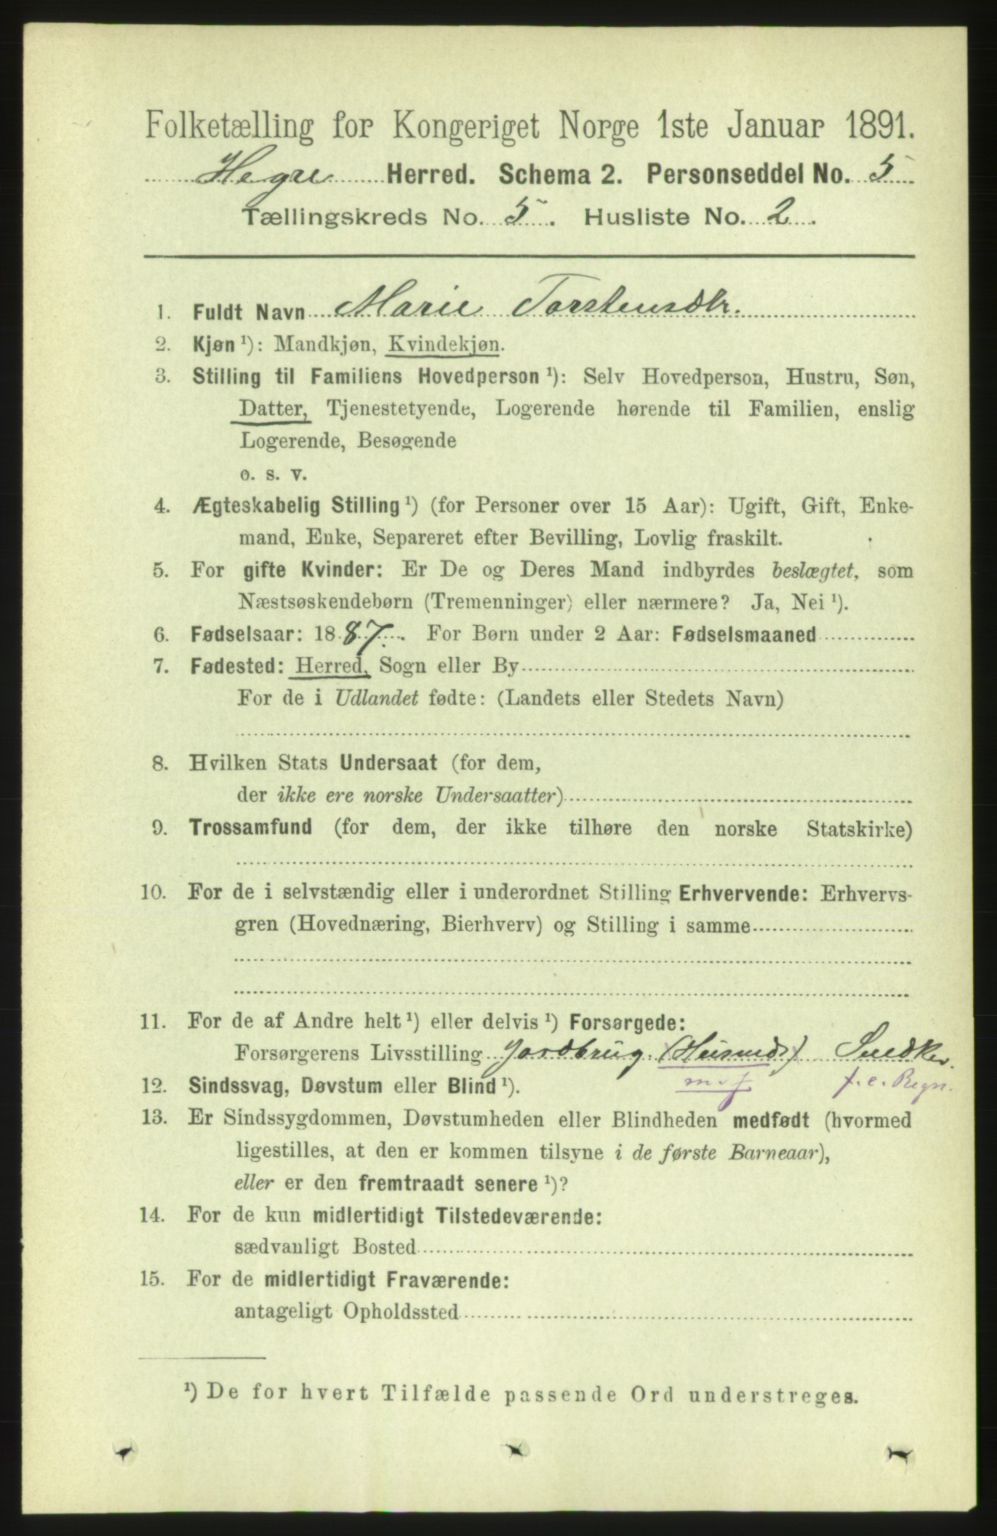 Folketælling for Kongeriget Norge 1ste Januar 1891.
Hegre Herred. Schema 2. Personseddel No. 5
Tællingskreds No. 5. Husliste No. 2.
1. Fuldt Navn Marie Torstensdtr.
2. Kjøn ¹): Mandkjøn, Kvindekjøn.
3. Stilling til Familiens Hovedperson ¹): Selv Hovedperson, Hustru, Søn,
Datter, Tjenestetyende, Logerende hørende til Familien, enslig
Logerende, Besøgende
o. s. v.
4. Ægteskabelig Stilling ¹) (for Personer over 15 Aar): Ugift, Gift, Enke-
mand, Enke, Separeret efter Bevilling, Lovlig fraskilt.
5. For gifte Kvinder: Er De og Deres Mand indbyrdes beslægtet, som
Næstsøskendebørn (Tremenninger) eller nærmere? Ja, Nei ¹).
6. Fødselsaar: 1887. For Børn under 2 Aar: Fødselsmaaned
7. Fødested: Herred, Sogn eller By
For de i Udlandet fødte: (Landets eller Stedets Navn)
8. Hvilken Stats Undersaat (for dem,
der ikke ere norske Undersaatter)
9. Trossamfund (for dem, der ikke tilhøre den norske Statskirke)
10. For de i selvstændig eller i underordnet Stilling Erhvervende: Erhvervs-
gren (Hovednæring, Bierhverv) og Stilling i samme
11. For de af Andre helt ¹) eller delvis ¹) Forsørgede:
Forsørgerens Livsstilling Jordbrug (Husmd) Snedker.
m. j f. e. Regn.
12. Sindssvag, Døvstum eller Blind ¹).
13. Er Sindssygdommen, Døvstumheden eller Blindheden medfødt (hvormed
ligestilles, at den er kommen tilsyne i de første Barneaar),
eller er den fremtraadt senere ¹)?
14. For de kun midlertidigt Tilstedeværende:
sædvanligt Bosted
15. For de midlertidigt Fraværende:
antageligt Opholdssted
¹) De for hvert Tilfælde passende Ord understreges.